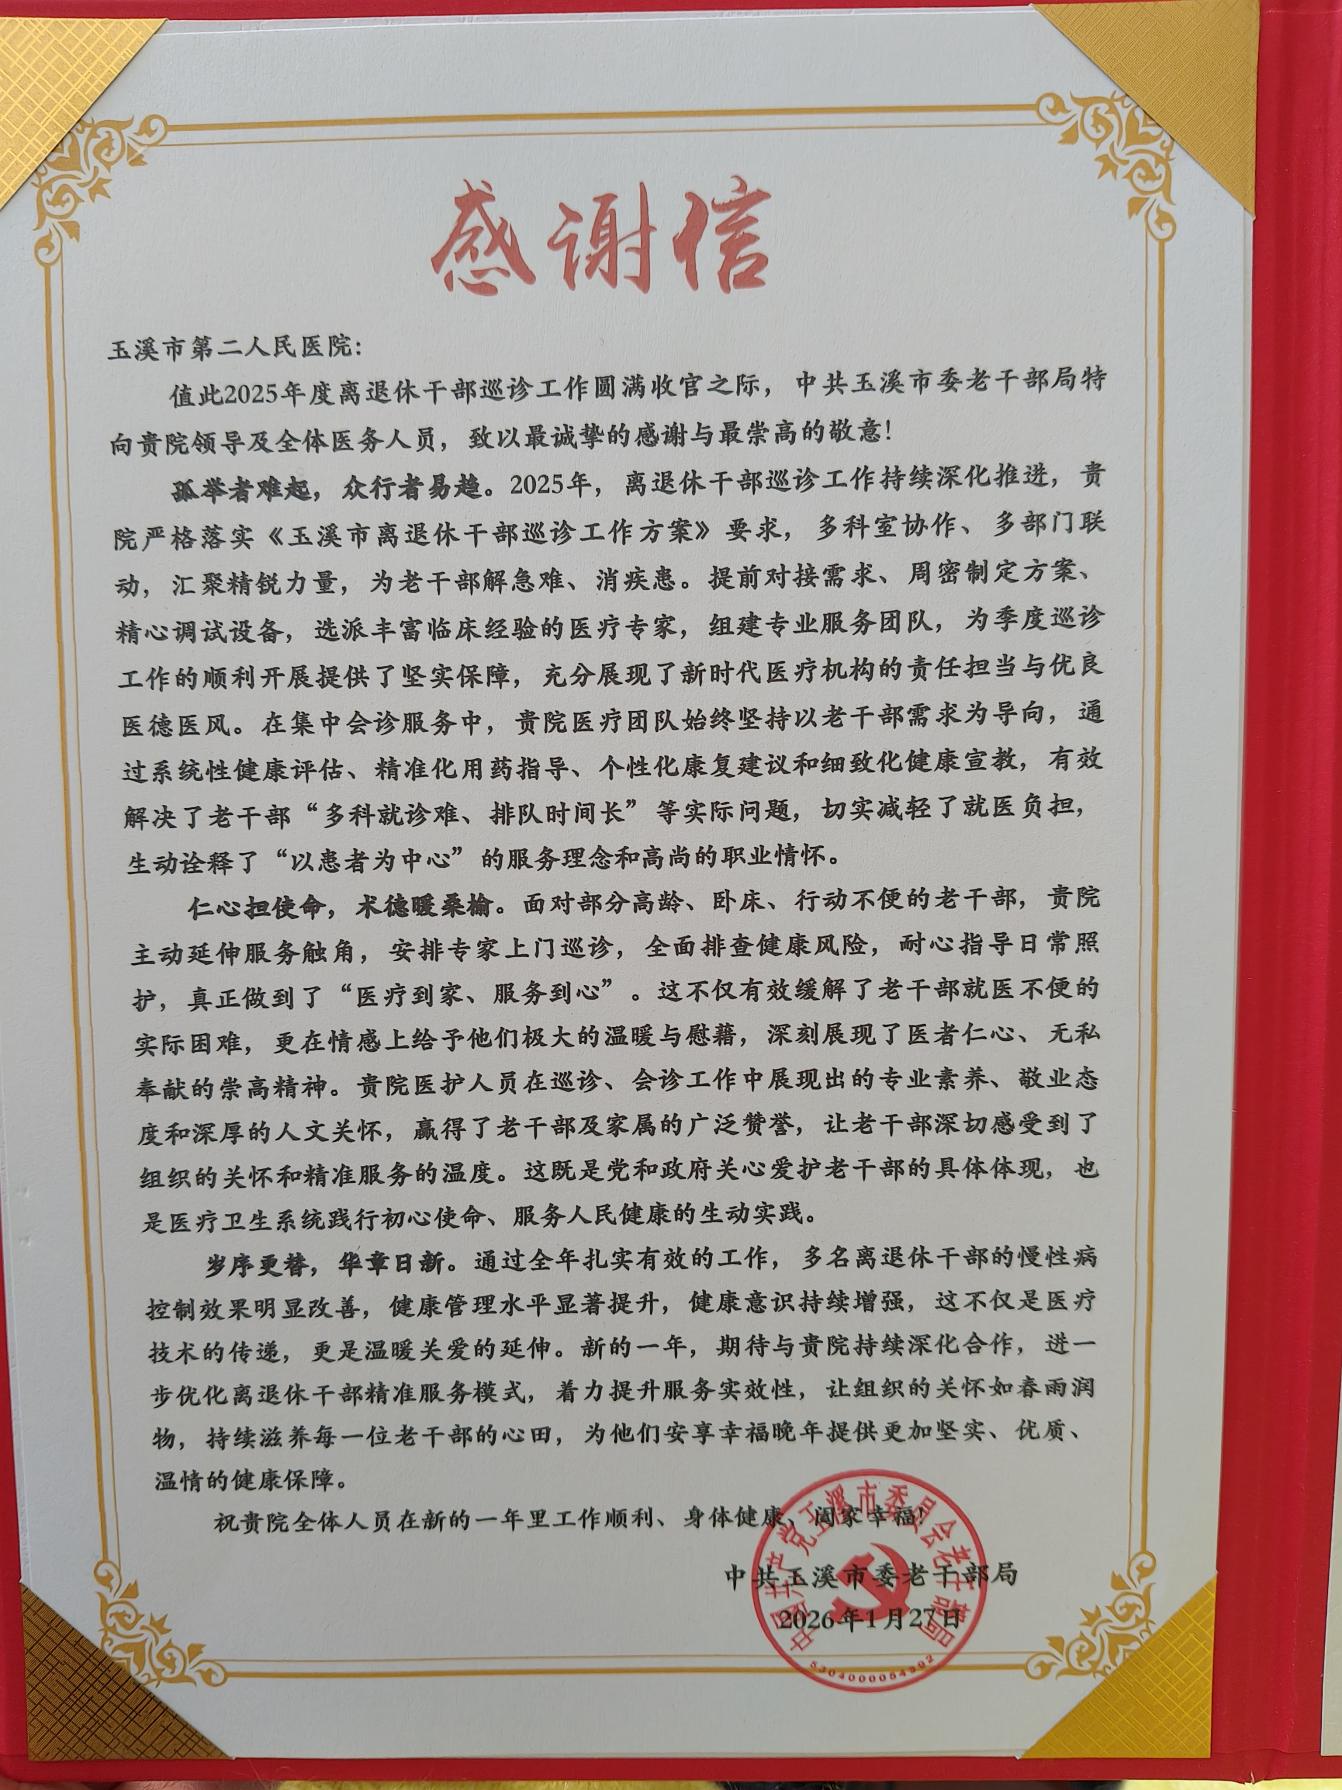 感谢信
玉溪市第二人民医院：
值此2025年度离退休干部巡诊工作圆满收官之际，中共玉溪市委老干部局特
向贵院领导及全体医务人员，致以最诚挚的感谢与最崇高的敬意！
孤举者难起，众行者易趋。2025年，离退休干部巡诊工作持续深化推进，贵
院严格落实《玉溪市离退休干部巡诊工作方案》要求，多科室协作、多部门联
动，汇聚精锐力量，为老干部解急难、消疾患。提前对接需求、周密制定方案、
精心调试设备，选派丰富临床经验的医疗专家，组建专业服务团队，为季度巡诊
工作的顺利开展提供了坚实保障，充分展现了新时代医疗机构的责任担当与优良
医德医风。在集中会诊服务中，贵院医疗团队始终坚持以老干部需求为导向，通
过系统性健康评估、精准化用药指导、个性化康复建议和细致化健康宣教，有效
解决了老干部“多科就诊难、排队时间长”等实际问题，切实减轻了就医负担，
生动诠释了“以患者为中心”的服务理念和高尚的职业情怀。
仁心担使命，术德暖桑榆。面对部分高龄、卧床、行动不便的老干部，贵院
主动延伸服务触角，安排专家上门巡诊，全面排查健康风险，耐心指导日常照
护，真正做到了“医疗到家、服务到心”。这不仅有效缓解了老干部就医不便的
实际困难，更在情感上给予他们极大的温暖与慰藉，深刻展现了医者仁心、无私
奉献的崇高精神。贵院医护人员在巡诊、会诊工作中展现出的专业素养、敬业态
度和深厚的人文关怀，赢得了老干部及家属的广泛赞誉，让老干部深切感受到了
组织的关怀和精准服务的温度。这既是党和政府关心爱护老干部的具体体现，也
是医疗卫生系统践行初心使命、服务人民健康的生动实践。
岁序更替，华章日新。通过全年扎实有效的工作，多名离退休干部的慢性病
控制效果明显改善，健康管理水平显著提升，健康意识持续增强，这不仅是医疗
技术的传递，更是温暖关爱的延伸。新的一年，期待与贵院持续深化合作，进一
步优化离退休干部精准服务模式，着力提升服务实效性，让组织的关怀如春雨润
物，持续滋养每一位老干部的心田，为他们安享幸福晚年提供更加坚实、优质、
温情的健康保障。
祝贵院全体人员在新的一年里工作顺利、身体健康、阖家幸福！
中共玉溪市委老干部局
2026年1月27日
中国共产党玉溪市委员会老干部局